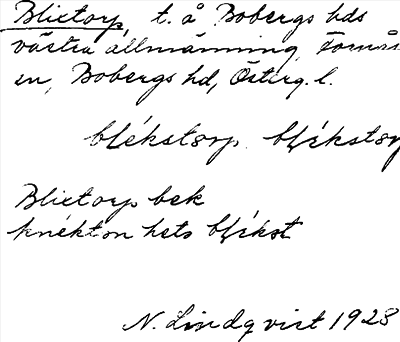 Blictorp, t. å Bobergs hds
västra allmänning, Fornås
en, Bobergs hd, Österg. l.
blékstorp blékstorp
Blictorp bek
knékton hets blékst
N. Lindqvist 1928